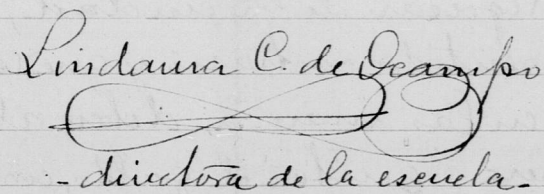 Lindaura C. de Ocampo
- directora de la escuela -